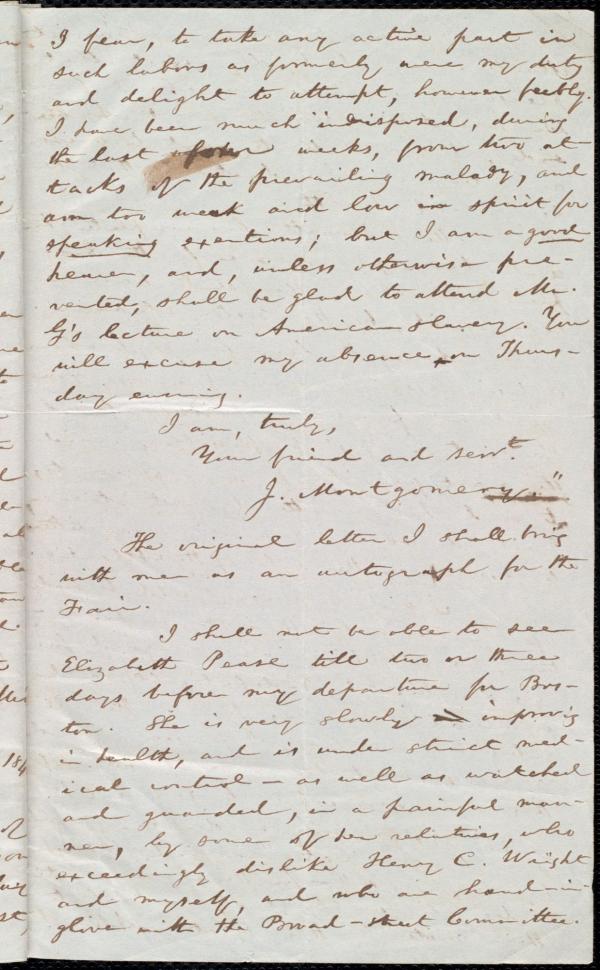 I fear, to take any active part in
such labors as formerly were my duty
and delight to attempt, however feebly.
I have been much indisposed, during
the last weeks, from two at
tacks of the prevailing malady, and
am too weak and low in spirit for
speaking exertions; but I am a good
hearer, and, unless otherwise pre-
vented, shall be glad to attend Mr.
G's lecture on American slavery. You
will excuse my absence on Thurs-
day evening.
I am, truly,
Your friend and servt.
J. Montgomery."
The original letter I shall bring
with me as an autograph for the
Fair.
I shall not be able to see
Elizabeth Pease till two or three
days before my departure for Bos-
ton. She is very slowly improving
in health, and is under strict med-
ical control — as well as watched
and guarded, in a painful man-
ner, by some of her relatives, who
exceedingly dislike Henry C. Wright
and myself, and who are hand-in-
glove with the Broad-street Committee.